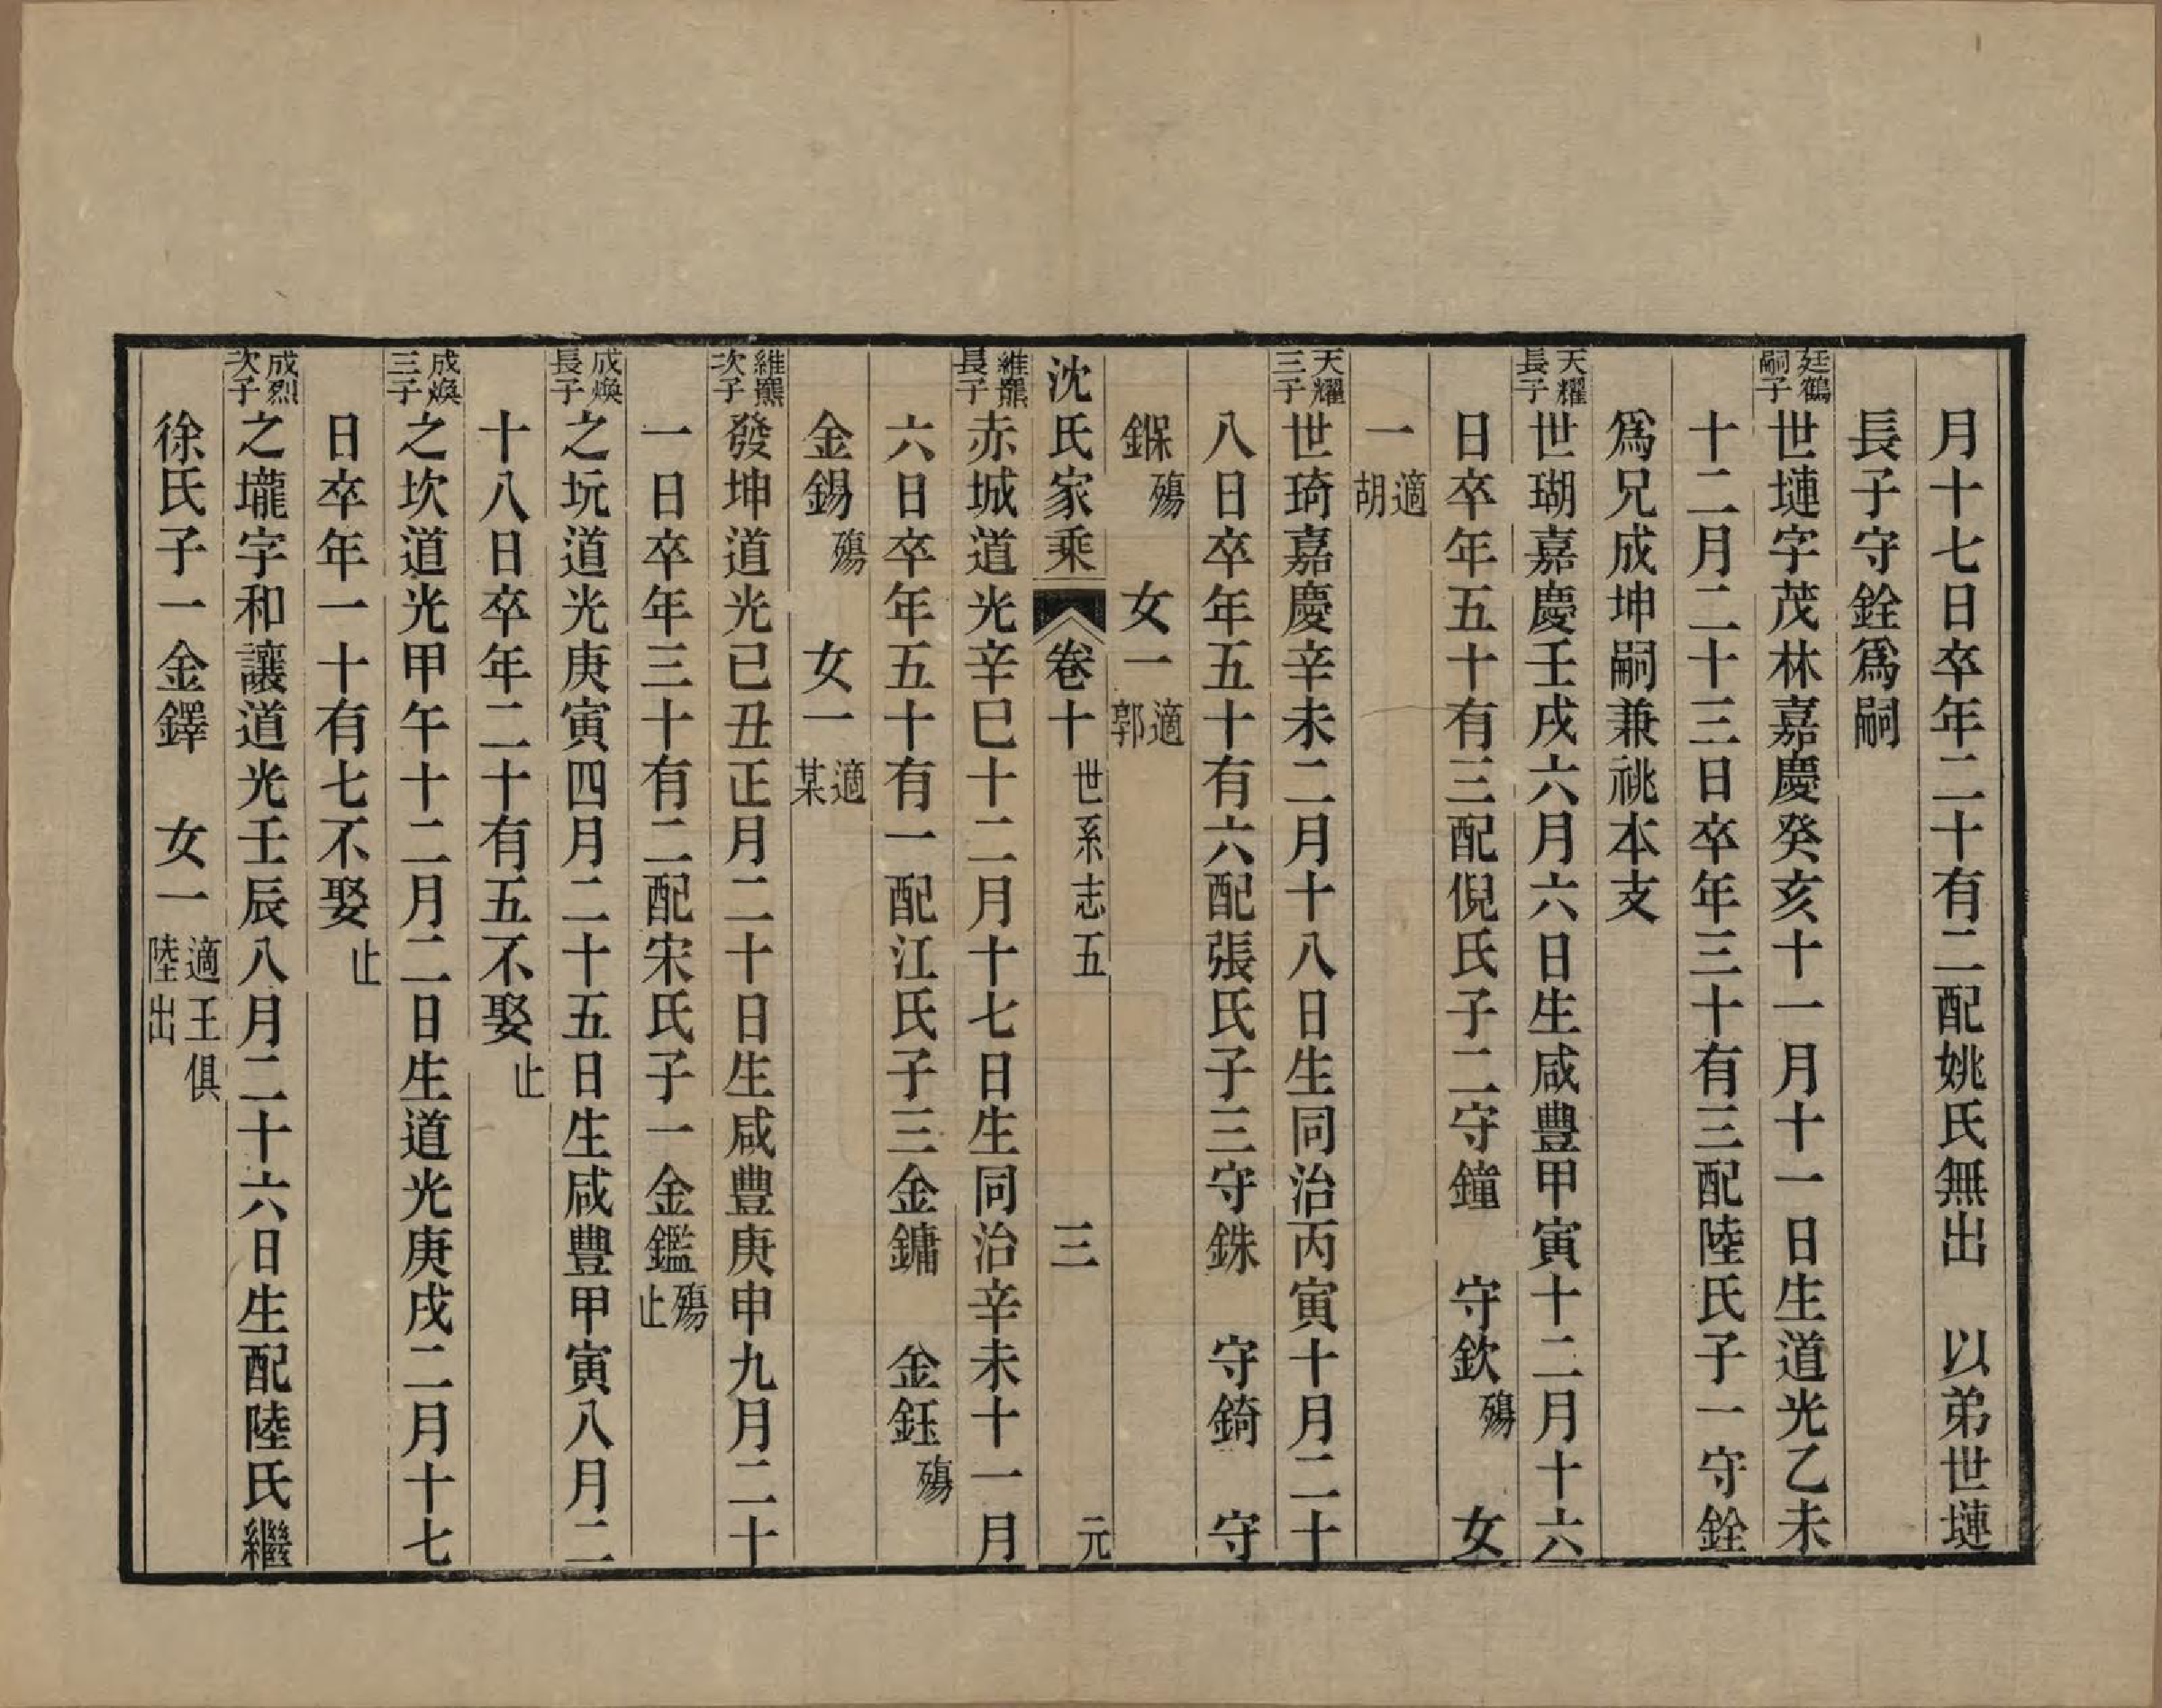 月十七日卒年二十有二配姚氏無出　以弟世塳
長子守銓爲嗣
廷鶴嗣子世塳字茂林嘉慶癸亥十一月十一日生道光乙未
十二月二十三日卒年三十有三配陸氏子一守銓
爲兄成坤嗣兼祧本支
天耀長子世瑚嘉慶壬戌六月六日生咸豐甲寅十二月十六
日卒年五十有三配倪氏子二守鐘　守欽殤　女
一適胡
天耀三子世琦嘉慶辛未二月十八日生同治丙寅十月二十
八日卒年五十有六配張氏子三守銖　守錡　守
鎃殤　女一適郭
沈氏家乘　卷十　世系志五　三　元
維羆長子赤城道光辛巳十二月十七日生同治辛未十一月
六日卒年五十有一配江氏子三金鏞　金鈺殤
金錫殤　女一適某
維羆次子發坤道光已丑正月二十日生咸豐庚申九月二十
一日卒年三十有二配宋氏子一金鑑殤止
成煥長子之坃道光庚寅四月二十五日生咸豐甲寅八月二
十八日卒年二十有五不娶止
成煥三子之坎道光甲午十二月二日生道光庚戌二月十七
日卒年一十有七不娶止
成烈次子之壠字和讓道光壬辰八月二十六日生配陸氏繼
徐氏子一金鐸　女一適王俱陸出